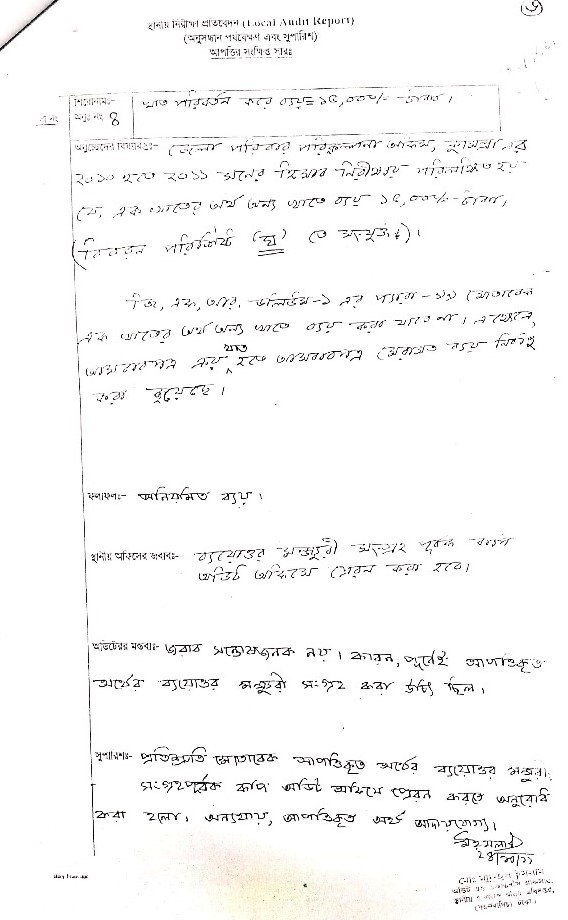 স্থানীয় নিরীক্ষা প্রতিবেদন (Local Audit Report)
(অনুসন্ধান পর্যবেক্ষণ এবং সুপারিশ)
আপত্তির সংক্ষিপ্ত সারঃ
শিরোনামঃ- খাত পরিবর্তন করে ব্যয়ঃ ১৫,০০০/- টাকা।
অনুঃ নং ৪
অনুচ্ছেদের বিষয়বস্তুঃ- জেলা পরিবার পরিকল্পনা অফিস, এর
২০১০ হতে ২০১১ সনের হিসাব নিরীক্ষায় পরিলক্ষিত হয়
যে, এক খাতের অর্থ অন্য খাতে ব্যয় ১৫,০০০/- টাকা,
(বিবরন পরিশিষ্ট (ঘ) তে সংযুক্ত)।
জি, এফ, আর, ভলিউম-১ এর প্যারা - মোতাবেক
এক খাতের অর্থ অন্য খাতে ব্যয় করা যাবে না। এক্ষেত্রে,
আসবাবপত্র ক্রয় খাত হতে আসবাবপত্র মেরামত ব্যয় নির্বাহ
করা হয়েছে।
ফলাফলঃ- অনিয়মিত ব্যয়।
স্থানীয় অফিসের জবাবঃ- ব্যয়োত্তর মঞ্জুরী সংগ্রহ পূর্বক
অডিট অফিসে প্রেরন করা হবে।
অডিটের মন্তব্যঃ- জবাব সন্তোষজনক নয়। কারন, পূর্বেই আপত্তিকৃত
অর্থের ব্যয়োত্তর মঞ্জুরী সংগ্রহ করা উচিৎ ছিল।
সুপারিশঃ- প্রতিশ্রুতি মোতাবেক আপত্তিকৃত অর্থের ব্যয়োত্তর মঞ্জুরী
সংগ্রহপূর্বক কপি অডিট অফিসে প্রেরন করতে অনুরোধ
করা হলো। অন্যথায়, আপত্তিকৃত অর্থ আদায়যোগ্য।